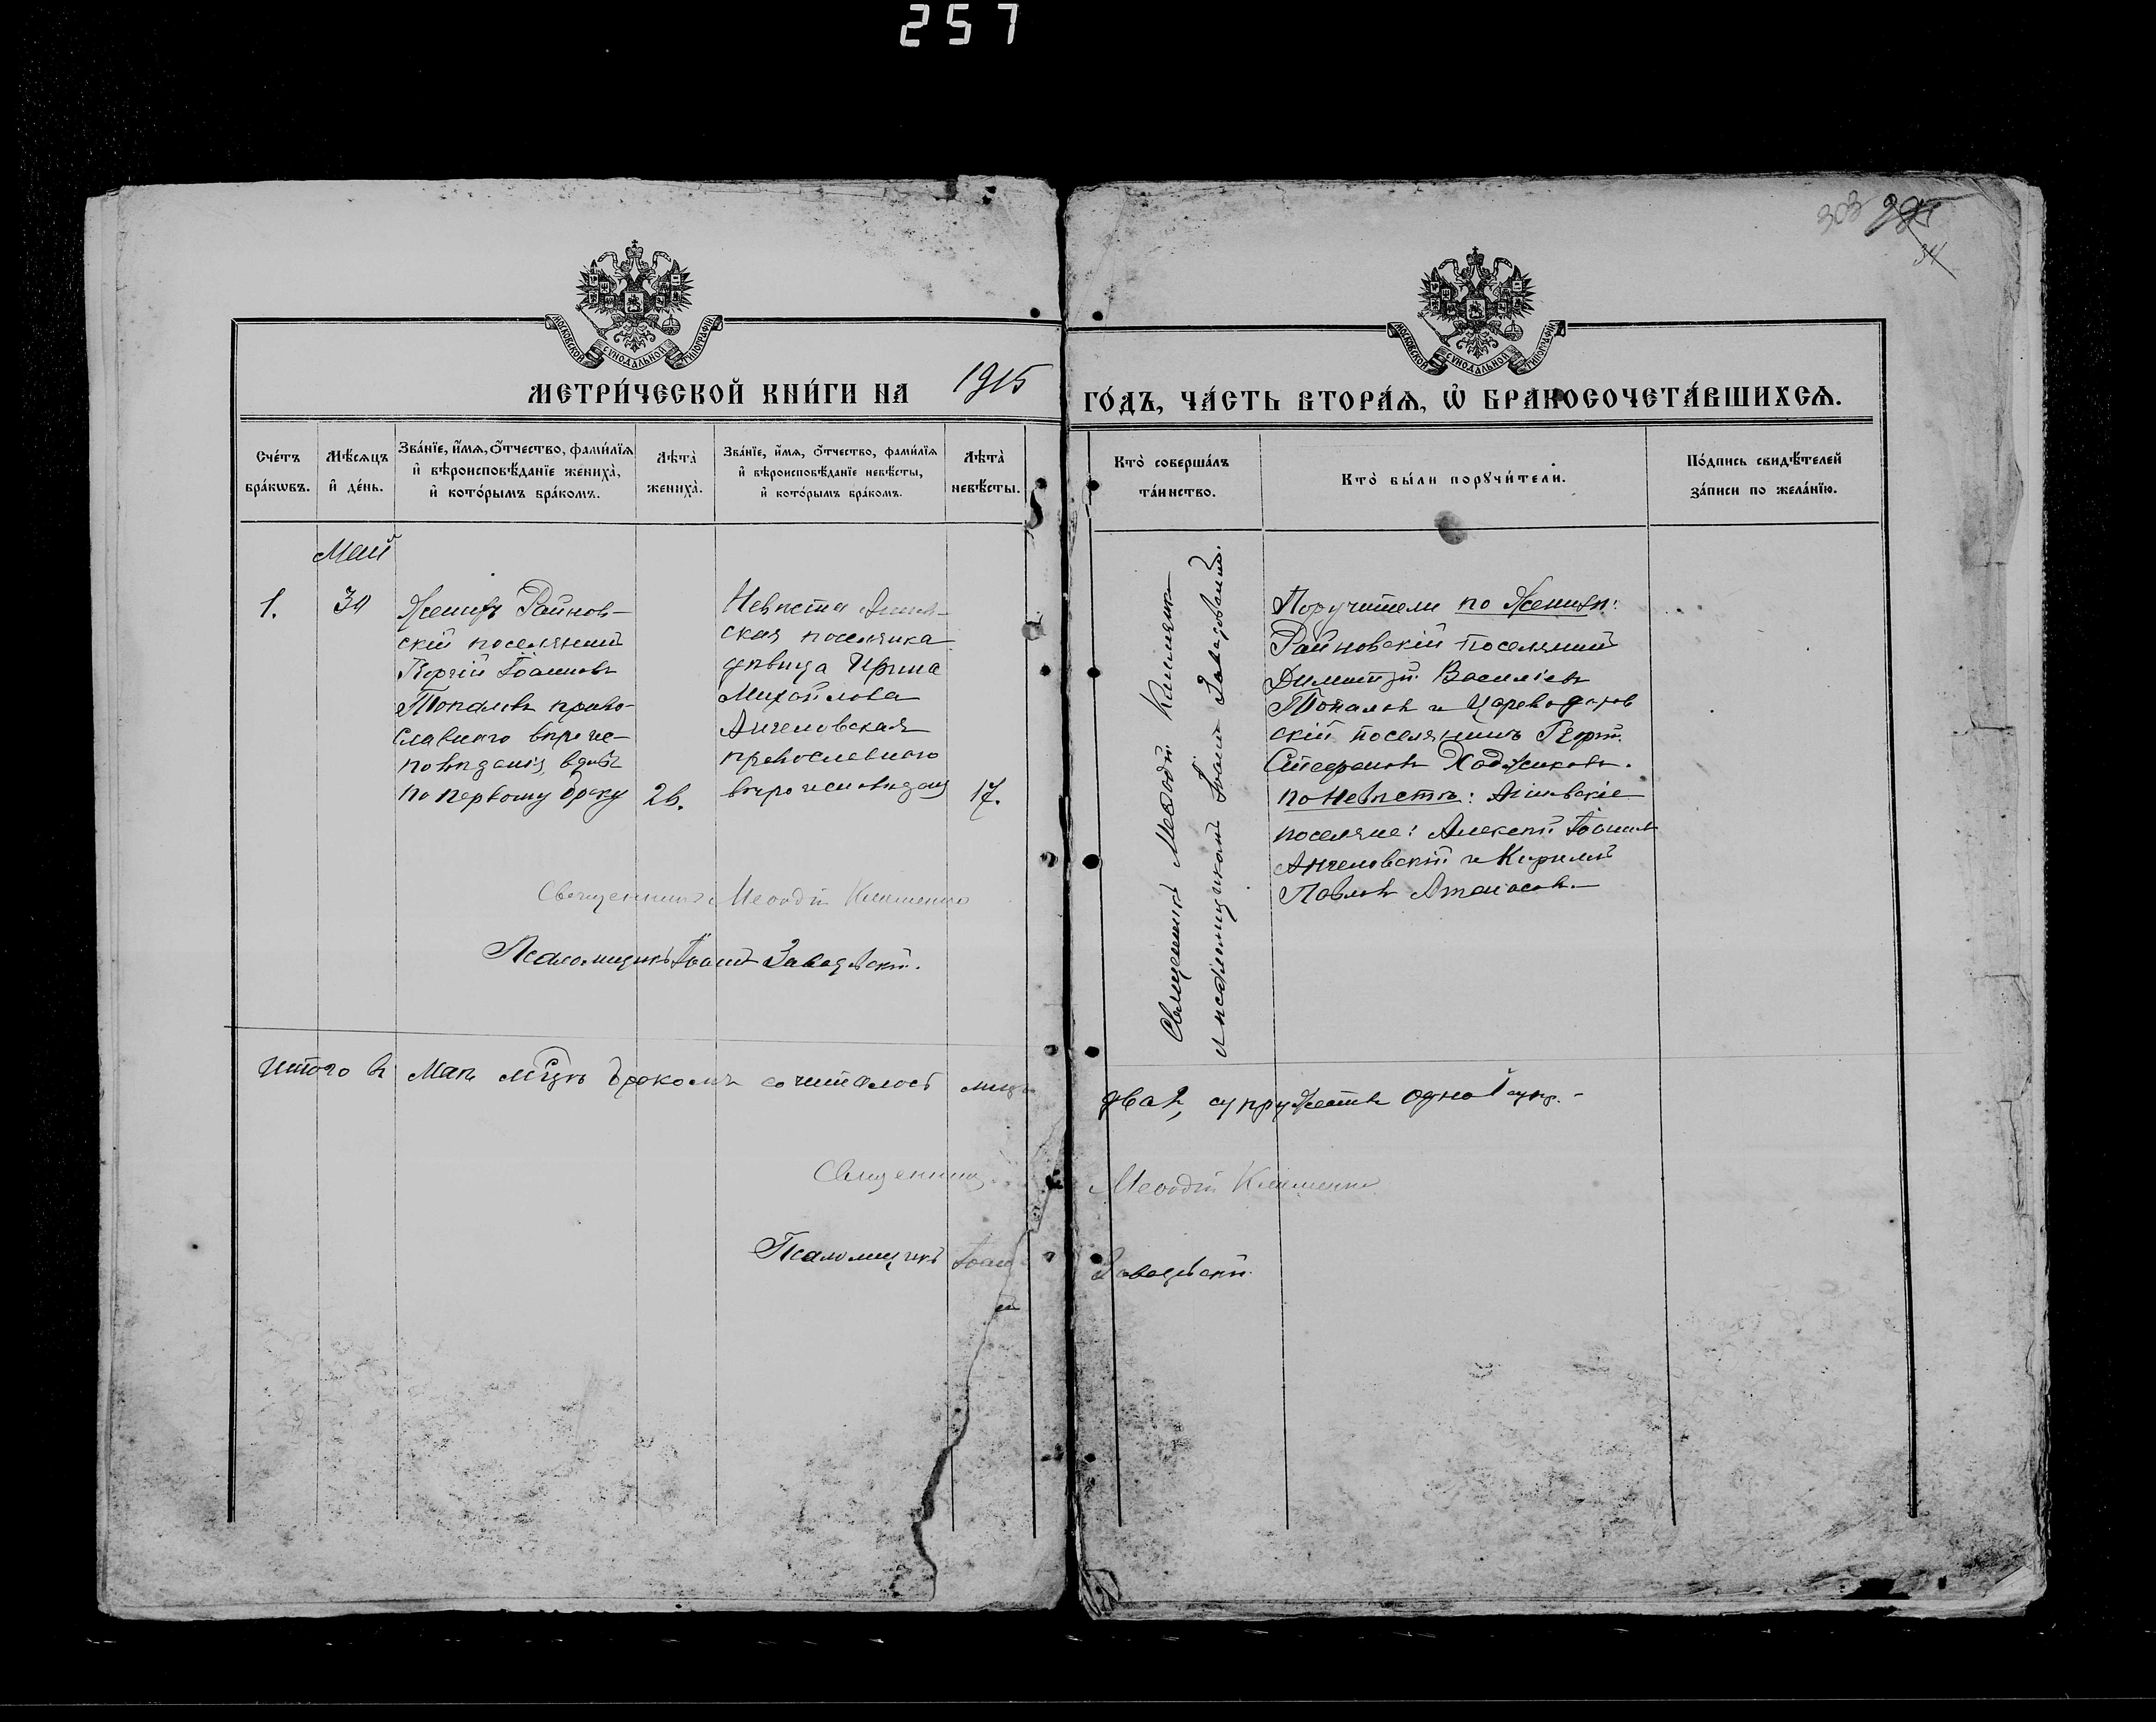 257
303
МОСКОВСКОЙ СѴНОДАЛЬНОЙ ТИПОГРАФІИ
МОСКОВСКОЙ СѴНОДАЛЬНОЙ ТИПОГРАФІИ
МЕТРИ́ЧЕСКОЙ КНИ́ГИ НА 1915 ГО́ДЪ, ЧА́СТЬ ВТОРА́Ѧ, Ѽ БРАКОСОЧЕТА́ВШИХСѦ.
Сче́тъ
бра́кѡвъ.
Мѣ́сѧцъ
и҆ де́нь.
Зва́нїе, и҆́мѧ, ѻ҆́тчество, фами́лїѧ
и҆ вѣроисповѣ́данїе жениха̀,
и҆ кото́рымъ бра́комъ.
Лѣ́та̀
жениха̀.
Зва́нїе, и҆́мѧ, ѻ҆́тчество, фами́лїѧ
и҆ вѣроисповѣ́данїе невѣ́сты,
и҆ кото́рымъ бра́комъ.
Лѣ́та̀
невѣ́сты.
Кто̀ соверша́лъ
та́инство.
Кто̀ бы́ли порꙋчи́тели.
По́дпись свидѣ́телей
за́писи по жела́нїю.
Май
1.
30
Женихъ Райнов-
скій поселянинъ
Георгій Іоанновъ
Топаловъ право-
славнаго вѣроис-
повѣданія,
по первому браку
26.
Невѣста
ская поселянка
дѣвица Ирина
Михайлова
Ангеловская
православнаго
вѣроисповѣдан
17.
Священникъ Меѳодій Клименко
и псаломщикъ Іоаннъ
Поручители по женихѣ:
Райновскій поселянинъ
Димитрій Василіевъ
Топаловъ и Цареводаров
скій поселянинъ Георгій
Стефановъ Хаджиковъ.
по невѣстѣ:
поселяне: Алексѣй Іоаннов
Ангеловскій и Кириллъ
Павловъ Атанасовъ.
Священникъ Меѳодій Клименко
Псаломщикъ Іоаннъ
Итого въ Маѣ м͠цѣ бракомъ сочиталось лицъ два 2, супружествъ одно 1 супр.
Священникъ Меѳодій Клименко
Псаломщикъ Іоаннъ